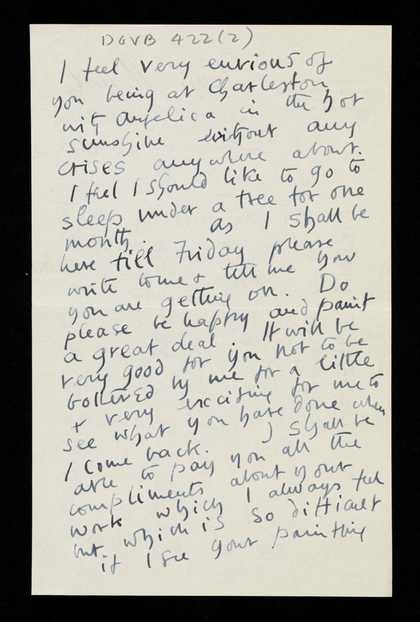 DGVB 422(2)
I feel very envious of
you being at Charleston
with Angelica in the hot
sunshine without any
crises anywhere about.
I feel I should like to go to
sleep under a tree for one
month. As I shall be
here till Friday please
write to me & tell me how
you are getting on. Do
please be happy and paint
a great deal. It will be
very good for you not to be
bothered by me for a little
& very exciting for me to
see what you have done when
I come back. I shall be
able to pay you all the
compliments about your
work which I always feel
but which is so difficult
if I see your painting